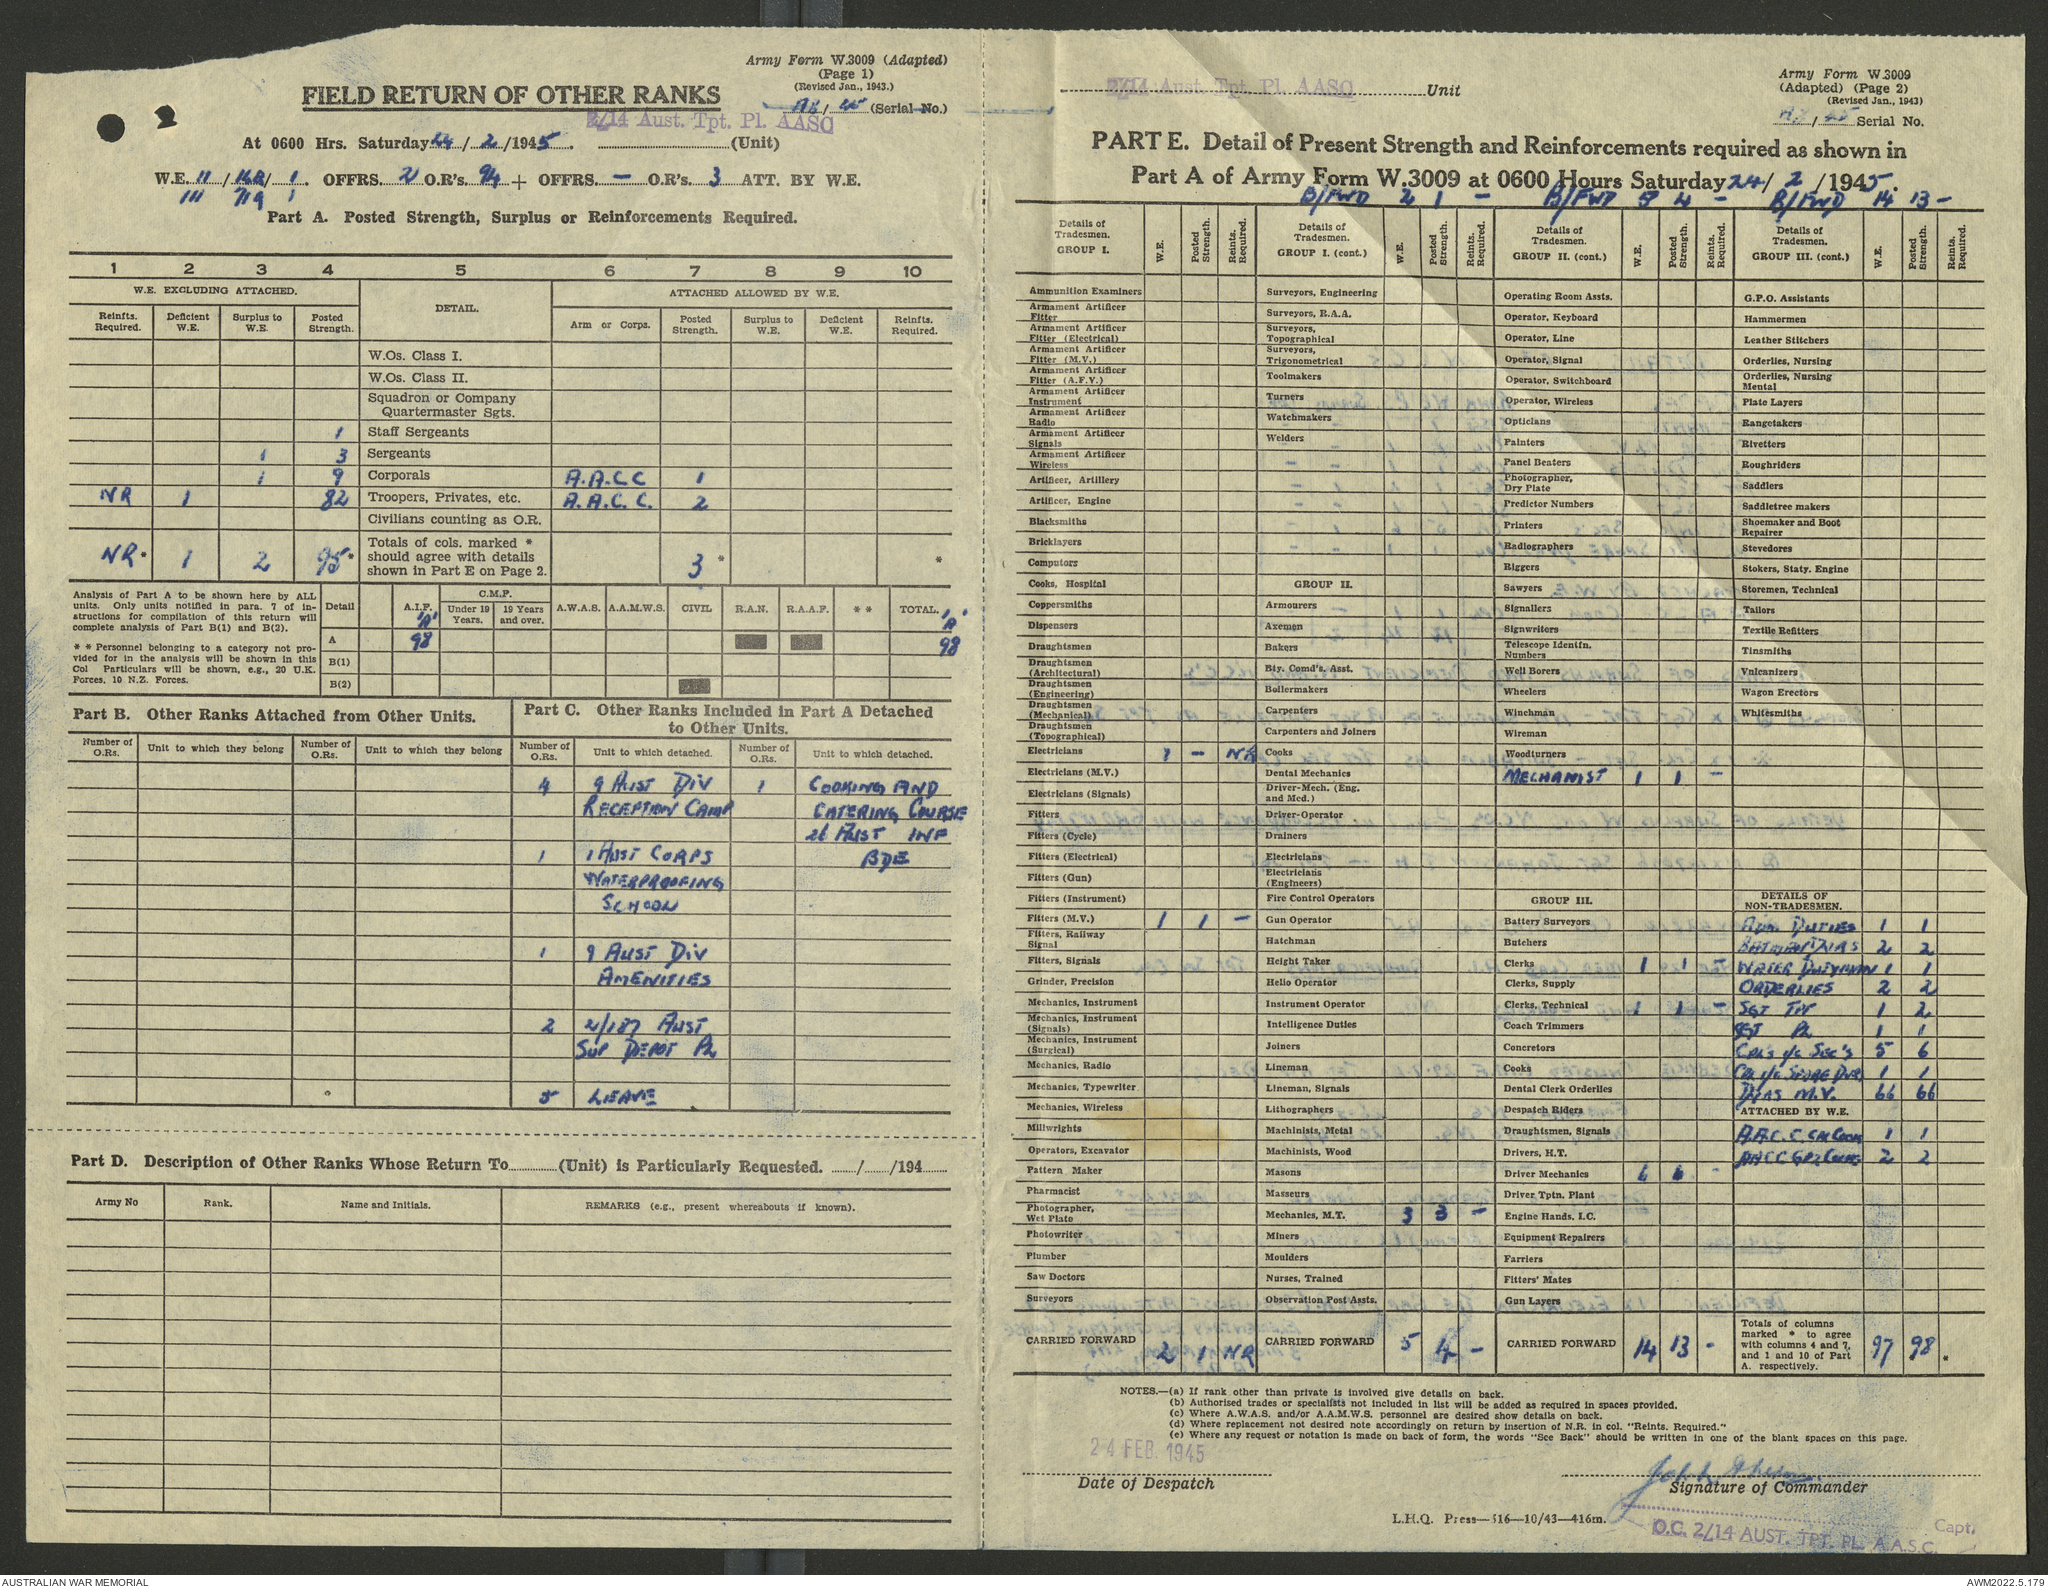 Army Form W.3009 (Adapted)
(Page 1)
(Revised Jan., 1943.)
FIELD RETURN OF OTHER RANKS
/ 45 (Serial No.)
2/14 Aust. Tpt. Pl. AASC
At 0600 Hrs. Saturday 24 / 2 / 1945. (Unit)
W.E. 11 / / 1. OFFRS. 2 O.R's. 94 + OFFRS. — O.R's. 3 ATT. BY W.E.
111 719 1
Part A. Posted Strength, Surplus or Reinforcements Required.
1 2 3 4 5 6 7 8 9 10
W.E. EXCLUDING ATTACHED. DETAIL. ATTACHED ALLOWED BY W.E.
Reinfts. Required. Deficient W.E. Surplus to W.E. Posted Strength. Arm or Corps. Posted Strength. Surplus to W.E. Deficient W.E. Reinfts. Required.
W.Os. Class I.
W.Os. Class II.
Squadron or Company
Quartermaster Sgts.
1 Staff Sergeants
1 3 Sergeants
1 9 Corporals A.A.C.C 1
NR 1 82 Troopers, Privates, etc. A.A.C.C. 2
Civilians counting as O.R.
NR * 1 2 95 * Totals of cols. marked * should agree with details shown in Part E on Page 2. 3 * *
Analysis of Part A to be shown here by ALL
units. Only units notified in para. 7 of in-
structions for compilation of this return will
complete analysis of Part B(1) and B(2).
* * Personnel belonging to a category not pro-
vided for in the analysis will be shown in this
Col Particulars will be shown, e.g., 20 U.K.
Forces, 10 N.Z. Forces.
Detail A.I.F. 'A' C.M.F. Under 19 Years. 19 Years and over. A.W.A.S. A.A.M.W.S. CIVIL R.A.N. R.A.A.F. * * TOTAL. 'A'
A 98 98
B(1)
B(2)
Part B. Other Ranks Attached from Other Units.
Number of O.Rs. Unit to which they belong Number of O.Rs. Unit to which they belong
Part C. Other Ranks Included in Part A Detached
to Other Units.
Number of O.Rs. Unit to which detached. Number of O.Rs. Unit to which detached.
4 9 AUST DIV 1 COOKING AND
RECEPTION CAMP CATERING COURSE
26 AUST INF
1 1 AUST CORPS BDE
WATERPROOFING
SCHOOL
1 9 AUST DIV
AMENITIES
2 2/187 AUST
SUP DEPOT PL
5 LEAVE
Part D. Description of Other Ranks Whose Return To (Unit) is Particularly Requested. / /194
Army No Rank. Name and Initials. REMARKS (e.g., present whereabouts if known).
2/14 Aust. Tpt. Pl. AASC Unit
Army Form W.3009
(Adapted) (Page 2)
(Revised Jan., 1943)
/ 45 Serial No.
PART E. Detail of Present Strength and Reinforcements required as shown in
Part A of Army Form W.3009 at 0600 Hours Saturday 24/ 2 / 1945.
B/FWD 2 1 — B/FWD 5 4 — B/FWD 14 13 —
Details of Tradesmen. GROUP I. W.E. Posted Strength. Reints. Required.
Ammunition Examiners
Armament Artificer Fitter
Armament Artificer Fitter (Electrical)
Armament Artificer Fitter (M.V.)
Armament Artificer Fitter (A.F.V.)
Armament Artificer Instrument
Armament Artificer Radio
Armament Artificer Signals
Armament Artificer Wireless
Artificer, Artillery
Artificer, Engine
Blacksmiths
Bricklayers
Computors
Cooks, Hospital
Coppersmiths
Dispensers
Draughtsmen
Draughtsmen (Architectural)
Draughtsmen (Engineering)
Draughtsmen (Mechanical)
Draughtsmen (Topographical)
Electricians 1 — NR
Electricians (M.V.)
Electricians (Signals)
Fitters
Fitters (Cycle)
Fitters (Electrical)
Fitters (Gun)
Fitters (Instrument)
Fitters (M.V.) 1 1 —
Fitters, Railway Signal
Fitters, Signals
Grinder, Precision
Mechanics, Instrument
Mechanics, Instrument (Signals)
Mechanics, Instrument (Surgical)
Mechanics, Radio
Mechanics, Typewriter
Mechanics, Wireless
Millwrights
Operators, Excavator
Pattern Maker
Pharmacist
Photographer, Wet Plate
Photowriter
Plumber
Saw Doctors
Surveyors
CARRIED FORWARD 2 1 NR
Details of Tradesmen. GROUP I. (cont.) W.E. Posted Strength. Reints. Required.
Surveyors, Engineering
Surveyors, R.A.A.
Surveyors, Topographical
Surveyors, Trigonometrical
Toolmakers
Turners
Watchmakers
Welders
GROUP II.
Armourers
Axemen
Bakers
Bty. Comd's. Asst.
Boilermakers
Carpenters
Carpenters and Joiners
Cooks
Dental Mechanics
Driver-Mech. (Eng. and Med.)
Driver-Operator
Drainers
Electricians
Electricians (Engineers)
Fire Control Operators
Gun Operator
Hatchman
Height Taker
Helio Operator
Instrument Operator
Intelligence Duties
Joiners
Lineman
Lineman, Signals
Lithographers
Machinists, Metal
Machinists, Wood
Masons
Masseurs
Mechanics, M.T. 3 3 —
Miners
Moulders
Nurses, Trained
Observation Post Assts.
CARRIED FORWARD 5 4 —
Details of Tradesmen. GROUP II. (cont.) W.E. Posted Strength. Reints. Required.
Operating Room Assts.
Operator, Keyboard
Operator, Line
Operator, Signal
Operator, Switchboard
Operator, Wireless
Opticians
Painters
Panel Beaters
Photographer, Dry Plate
Predictor Numbers
Printers
Radiographers
Riggers
Sawyers
Signallers
Signwriters
Telescope Identfn. Numbers
Well Borers
Wheelers
Winchman
Wireman
Woodturners
MECHANIST 1 1 —
GROUP III.
Battery Surveyors
Butchers
Clerks 1 1 —
Clerks, Supply
Clerks, Technical 1 1 —
Coach Trimmers
Concretors
Cooks
Dental Clerk Orderlies
Despatch Riders
Draughtsmen, Signals
Drivers, H.T.
Driver Mechanics 6 6 -
Driver Tptn. Plant
Engine Hands, I.C.
Equipment Repairers
Farriers
Fitters' Mates
Gun Layers
CARRIED FORWARD 14 13 -
Details of Tradesmen. GROUP III. (cont.) W.E. Posted Strength. Reints. Required.
G.P.O. Assistants
Hammermen
Leather Stitchers
Orderlies, Nursing
Orderlies, Nursing Mental
Plate Layers
Rangetakers
Rivetters
Roughriders
Saddlers
Saddletree makers
Shoemaker and Boot Repairer
Stevedores
Stokers, Staty. Engine
Storemen, Technical
Tailors
Textile Refitters
Tinsmiths
Vulcanizers
Wagon Erectors
Whitesmiths
DETAILS OF NON-TRADESMEN.
ADM DUTIES 1 1
BATMEN/DVRS 2 2
WATER DUTYMAN 1 1
ORDERLIES 2 2
SGT TPT 1 2
SGT PL 1 1
CPLS i/c SEC'S 5 6
CPL i/c SPARE DVRS 1 1
DVRS M.V. 66 66
ATTACHED BY W.E.
A.A.C.C. CPL COOK 1 1
AACC GP2 COOKS 2 2
Totals of columns marked * to agree with columns 4 and 7, and 1 and 10 of Part A. respectively. 97 98 *
NOTES.—(a) If rank other than private is involved give details on back.
(b) Authorised trades or specialists not included in list will be added as required in spaces provided.
(c) Where A.W.A.S. and/or A.A.M.W.S. personnel are desired show details on back.
(d) Where replacement not desired note accordingly on return by insertion of N.R. in col. "Reints. Required."
(e) Where any request or notation is made on back of form, the words "See Back" should be written in one of the blank spaces on this page.
24 FEB 1945
Date of Despatch
Signature of Commander
L.H.Q. Press—516—10/43—416m.
Capt.
O.C. 2/14 AUST. TPT. PL. A.A.S.C.
AUSTRALIAN WAR MEMORIAL
AWM2022.5.179